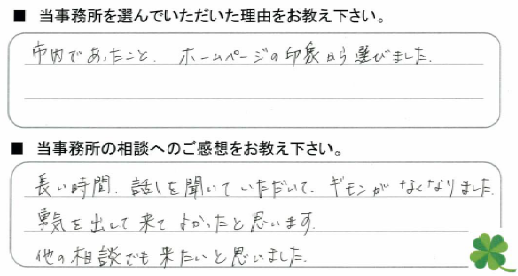 ■ 当事務所を選んでいただいた理由をお教え下さい。
市内であったこと、ホームページの印象から選びました。
■ 当事務所の相談へのご感想をお教え下さい。
長い時間、話しを聞いていただいて、ギモンがなくなりました。
勇気を出して来てよかったと思います。
他の相談でも来たいと思いました。